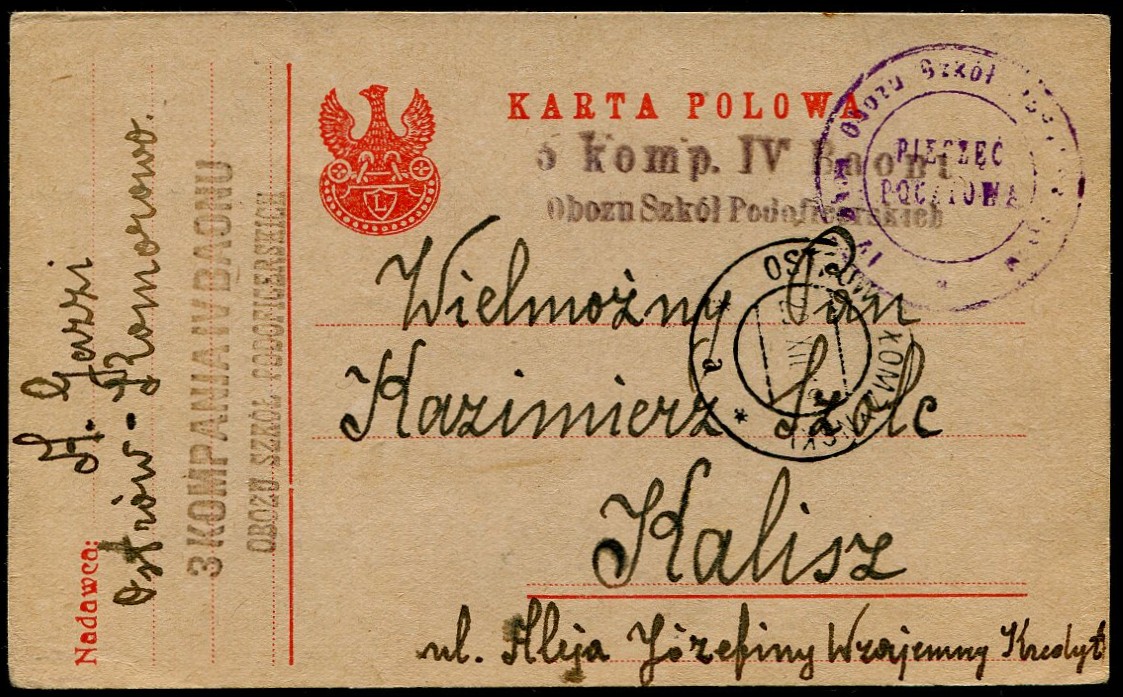 KARTA POLOWA
5 komp. IV Baonu
Obozu Szkół Podoficerskich
IV Obozu Szkół
PIECZĘĆ
POCZTOWA
L
Wielmożny Pan
Kazimierz Szolc
Kalisz
ul. Aleja Józefiny Wzajemny Kredyt
Nadawca:
A. Gerzi
Ostrów-Komorowo.
3 KOMPANIA IV BAONU
OBOZU SZKÓŁ PODOFICERSKICH
a
XII